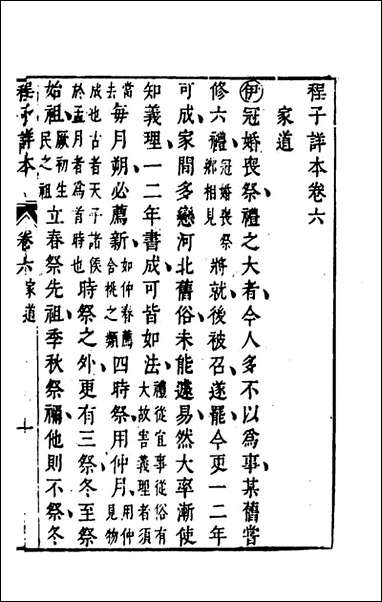 程子詳本卷六
家道
伊冠婚喪祭禮之大者今人多不以爲事某舊嘗
修六禮冠婚喪祭鄉相見將就後被召遂罷今更一二年
可成家間多戀河北舊俗未能遽易然大率漸使
知義理一二年書成可皆如法禮從宜事從俗有大故害義理者須
當去每月朔必薦新如仲春薦含桃之類四時祭用仲月用仲見物
成也古者天子諸侯於孟月者爲首時也時祭之外更有三祭冬至祭
始祖厥初生民之祖立春祭先祖季秋祭禰他則不祭冬
程子詳本 卷六 家道 十